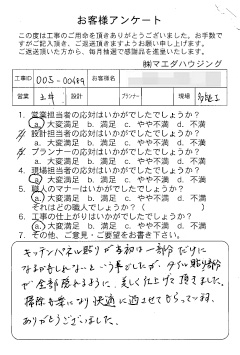 お客様アンケート
この度は工事のご用命を頂きありがとうございました。お手数で
すがご記入頂き、ご返送頂きますようお願い申し上げます。
ご返送頂いた方から、毎月抽選で感謝品を進呈いたします。
㈱マエダハウジング
工事ID 003- お客様名
営業 設計 プランナー 現場
1. 営業担当者の応対はいかがでしたでしょうか?
a. 大変満足 b. 満足 c. やや不満 d. 不満
2. 設計担当者の応対はいかがでしたでしょうか?
a. 大変満足 b. 満足 c. やや不満 d. 不満
4. プランナーの応対はいかがでしたでしょうか?
a. 大変満足 b. 満足 c. やや不満 d. 不満
5. 職人のマナーはいかがでしたでしょうか?
a. 大変満足 b. 満足 c. やや不満 d. 不満
それはどの職人でしょうか?( )
6. 工事の仕上がりはいかがでしたでしょうか?
a. 大変満足 b. 満足 c. やや不満 d. 不満
7. その他、ご意見・ご要望をお書き下さい。
キッチンパネル貼りが当初は一部分だけに
なるかもしれないという事でしたが、タイル貼り部分
が全部隠れるように、美しく仕上げて頂きました。
掃除も楽になり快適に過させてもらっています。
ありがとうございました。